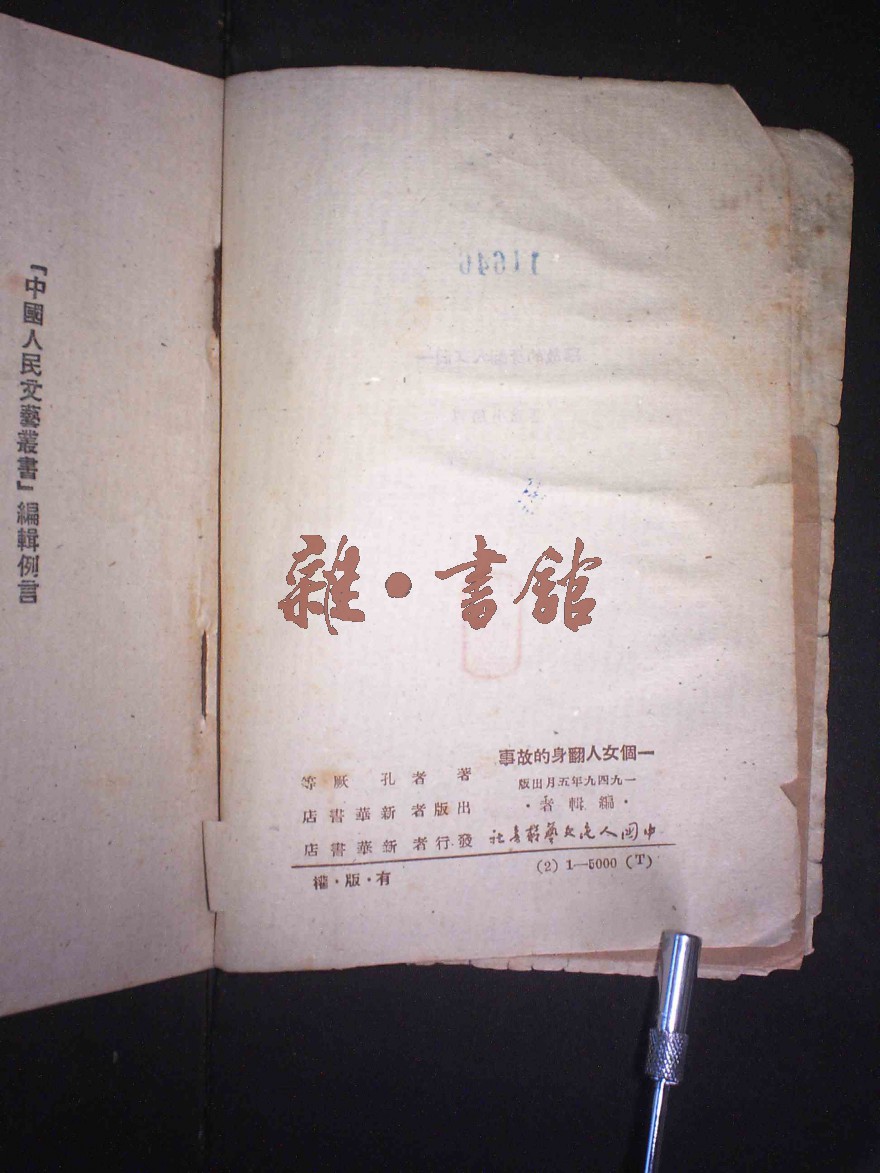 『中國人民文藝叢書』編輯例言
雜•書館
一個女人翻身的故事
一九四九年五月出版
•編輯者•
中國人民文藝叢書社
著者 孔厥等
出版者 新華書店
發行者 新華書店
(2) 1—5000 (T)
有•版•權